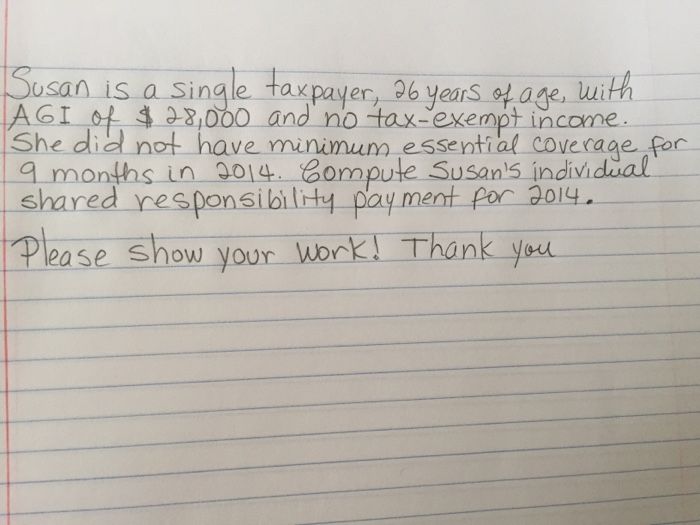 Susan is a single taxpayer, 26 years of age, with
AGI of $28,000 and no tax-exempt income.
She did not have minimum essential coverage for
9 months in 2014. Compute Susan's individual
shared responsibility payment for 2014.
Please show your work! Thank you